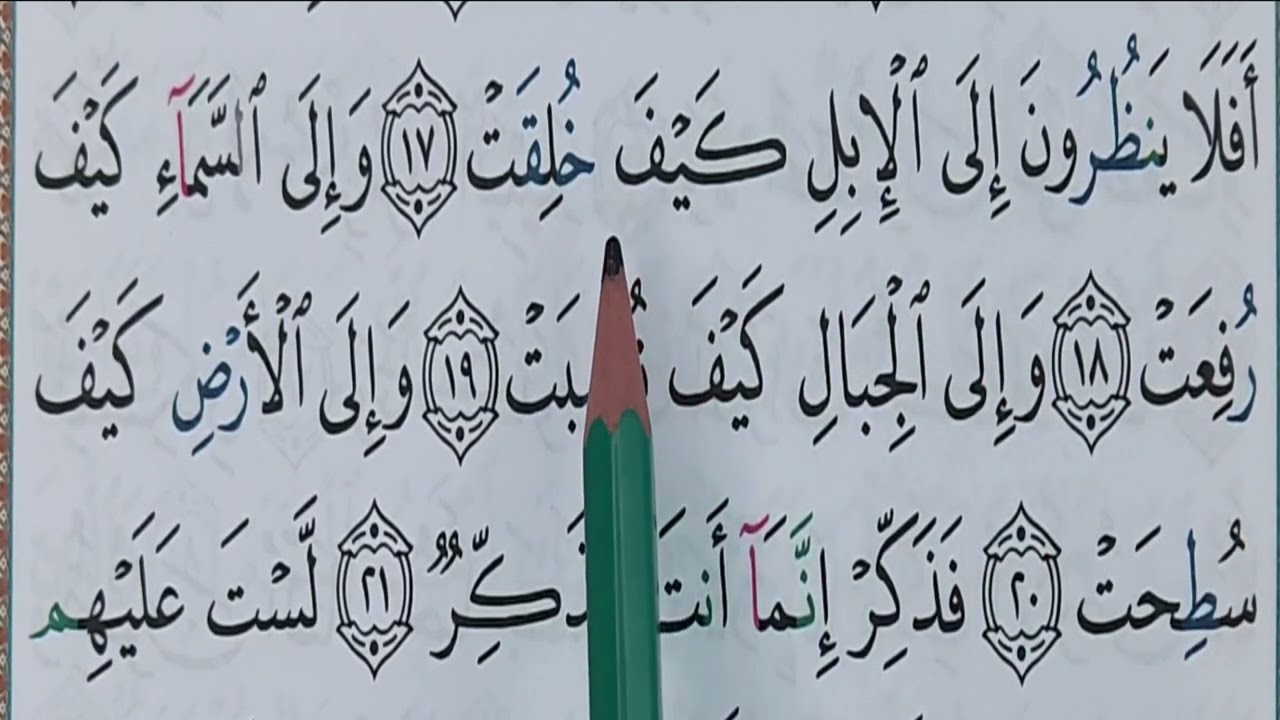 أَفَلَا يَنظُرُونَ إِلَى ٱلْإِبِلِ كَيْفَ خُلِقَتْ ١٧ وَإِلَى ٱلسَّمَآءِ كَيْفَ
رُفِعَتْ ١٨ وَإِلَى ٱلْجِبَالِ كَيْفَ ١٩ وَإِلَى ٱلْأَرْضِ كَيْفَ
سُطِحَتْ ٢٠ فَذَكِّرْ إِنَّمَآ أَنتَ ٢١ لَّسْتَ عَلَيْهِم